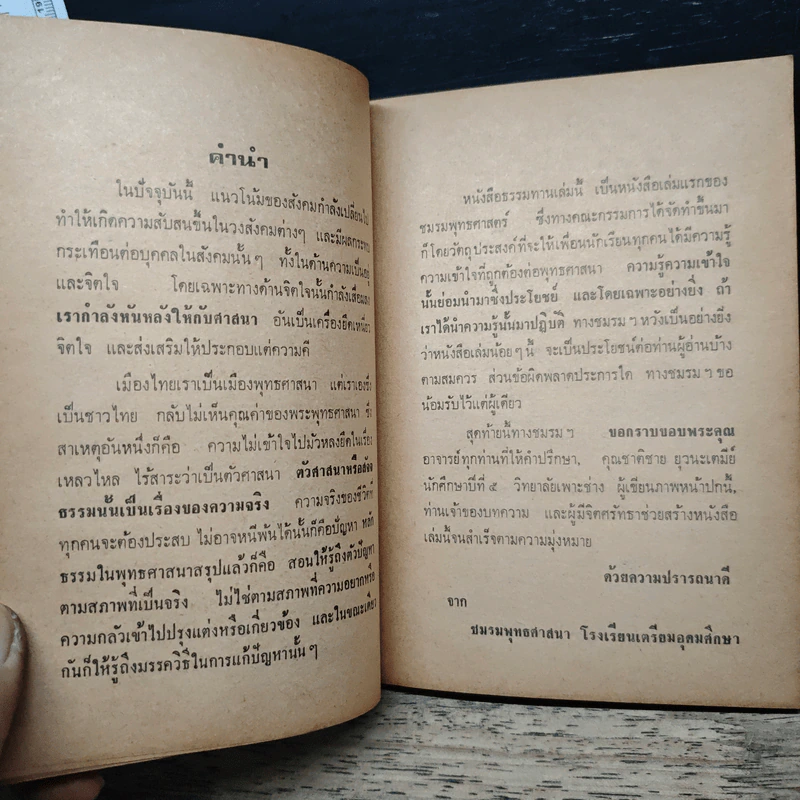 คำนำ
ในปัจจุบันนี้ แนวโน้มของสังคมกำลังเปลี่ยนไป
ทำให้เกิดความสับสนขึ้นในวงสังคมต่างๆ และมีผลกระทบ
กระเทือนต่อบุคคลในสังคมนั้นๆ ทั้งในด้านความเป็นอยู่
และจิตใจ โดยเฉพาะทางด้านจิตใจนั้นกำลังเสื่อมลง
เรากำลังหันหลังให้กับศาสนา อันเป็นเครื่องยึดเหนี่ยว
จิตใจ และส่งเสริมให้ประกอบแต่ความดี
เมืองไทยเราเป็นเมืองพุทธศาสนา แต่เราเองซึ่ง
เป็นชาวไทย กลับไม่เห็นคุณค่าของพระพุทธศาสนา ซึ่ง
สาเหตุอันหนึ่งก็คือ ความไม่เข้าใจไปมัวหลงยึดในเรื่อง
เหลวไหล ไร้สาระว่าเป็นตัวศาสนา ตัวศาสนาหรือสัจจ
ธรรมนั้นเป็นเรื่องของความจริง ความจริงของชีวิตที่
ทุกคนจะต้องประสบ ไม่อาจหนีพ้นได้นั้นก็คือปัญหา หลัก
ธรรมในพุทธศาสนาสรุปแล้วก็คือ สอนให้รู้ถึงตัวปัญหา
ตามสภาพที่เป็นจริง ไม่ใช่ตามสภาพที่ความอยากหรือ
ความกลัวเข้าไปปรุงแต่งหรือเกี่ยวข้อง และในขณะเดียว
กันก็ให้รู้ถึงมรรควิธีในการแก้ปัญหานั้นๆ
หนังสือธรรมทานเล่มนี้ เป็นหนังสือเล่มแรกของ
ชมรมพุทธศาสตร์ ซึ่งทางคณะกรรมการได้จัดทำขึ้นมา
ก็โดยวัตถุประสงค์ที่จะให้เพื่อนนักเรียนทุกคนได้มีความรู้
ความเข้าใจที่ถูกต้องต่อพุทธศาสนา ความรู้ความเข้าใจ
นั้นย่อมนำมาซึ่งประโยชน์ และโดยเฉพาะอย่างยิ่ง ถ้า
เราได้นำความรู้นั้นมาปฏิบัติ ทางชมรมฯหวังเป็นอย่างยิ่ง
ว่าหนังสือเล่มน้อยๆนี้ จะเป็นประโยชน์ต่อท่านผู้อ่านบ้าง
ตามสมควร ส่วนข้อผิดพลาดประการใด ทางชมรมฯขอ
น้อมรับไว้แต่ผู้เดียว
สุดท้ายนี้ทางชมรมฯ ขอกราบขอบพระคุณ
อาจารย์ทุกท่านที่ให้คำปรึกษา, คุณชาติชาย ยุวนะเตมีย์
นักศึกษาปีที่ ๕ วิทยาลัยเพาะช่าง ผู้เขียนภาพหน้าปกนี้,
ท่านเจ้าของบทความ และผู้มีจิตศรัทธาช่วยสร้างหนังสือ
เล่มนี้จนสำเร็จตามความมุ่งหมาย
ด้วยความปรารถนาดี
จาก
ชมรมพุทธศาสนา โรงเรียนเตรียมอุดมศึกษา